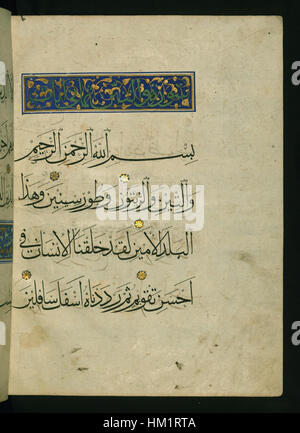 بسم الله الرحمن الرحيم
والتين والزيتون وطور سينين وهذا
البلد الامين لقد خلقنا الانسان في
احسن تقويم ثم رددناه اسفل سافلين